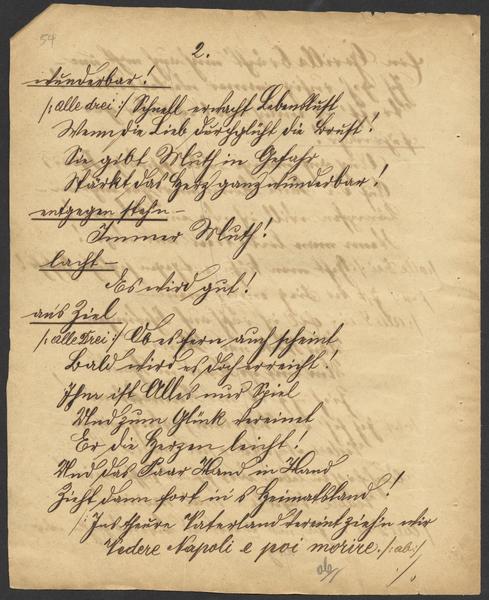 54
2.
wunderbar!
/: alle drei :/ Schnell erwacht Lebenslust
Wenn die Lieb durchglüht die Brust!
Sie gibt Muth in Gefahr
Stärkt das Herz ganz wunderbar!
entgegen stehn –
Immer Muth!
lacht –
Es wird gut!
an's Ziel
/: alle Drei :/ Ob es fern auch scheint
Bald wird es doch erreicht!
Ihm ist Alles nur Spiel
Und zum Glück vereinet
Er die Herzen leicht!
Und das Paar Hand in Hand
Zieht dann fort in's Heimatsland!
/: Ins theure Vaterland vereint ziehn wir
Vedere Napoli e poi morire. /: ab :/
ab